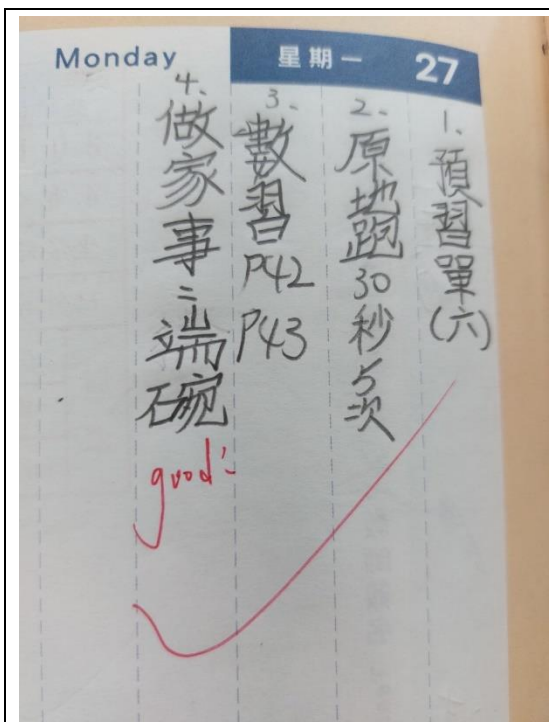 Monday 星期一 27
1、預習單(六)
2、原地跑30秒5次
3、數習P42 P43
4、做家事：端碗
good!